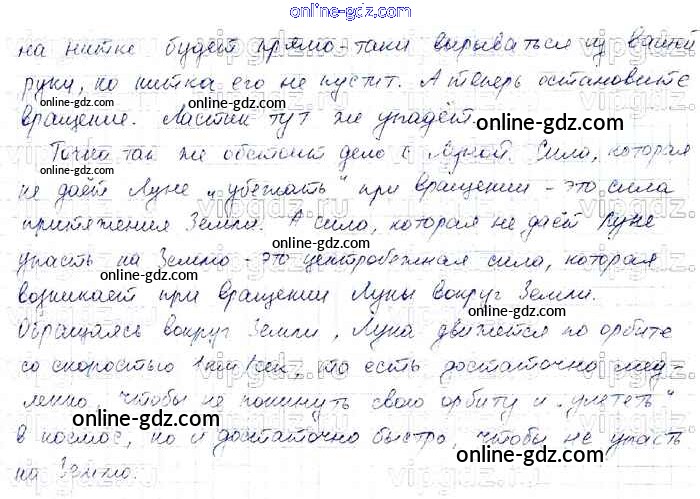 online-gdz.com
на нитке будет прямо-таки вырываться из вашей
руки, но нитка его не пустит. А теперь остановите
online-gdz.com online-gdz.com
вращение. Ластик тут же упадёт. online-gdz.com
Точно так же обстоит дело с Луной. Сила, которая
online-gdz.com online-gdz.com
не даёт Луне „убежать“ при вращении - это сила
притяжения Земли. А сила, которая не даёт Луне
online-gdz.com online-gdz.com
упасть на Землю - это центробежная сила, которая
возникает при вращении Луны вокруг Земли.
online-gdz.com
Обращаясь вокруг Земли, Луна движется по орбите
online-gdz.com
со скоростью 1 км/сек, то есть достаточно мед-
ленно, чтобы не покинуть свою орбиту и „улететь“
online-gdz.com online-gdz.com
в космос, но и достаточно быстро, чтобы не упасть
на Землю.
online-gdz.com